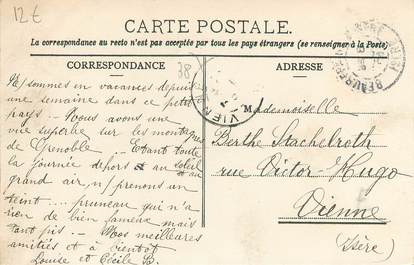 12€
CARTE POSTALE.
La correspondance au recto n'est pas acceptée par tous les pays étrangers (se renseigner à la Poste)
CORRESPONDANCE
ADRESSE
38
N/ sommes en vacances depuis
une semaine dans ce petit
pays. — Nous avons une
vue superbe sur les montagnes
de Grenoble. — Etant toute
la journée dehors au soleil
et au
grand air, n/ prenons un
teint ... pruneau qui n'a
rien de bien fameux mais
tant pis. — Nos meilleures
amitiés et à bientôt
Louise et Cécile B.
Mademoiselle
Berthe Stachelroth
rue Victor-Hugo
Vienne
(Isère)
VIENNE